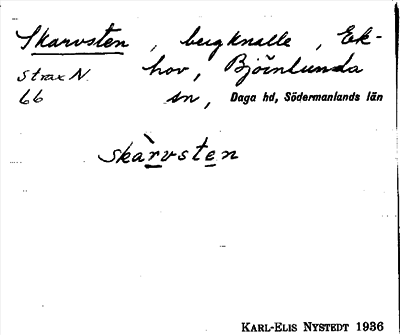 Skarvsten, bergknalle, Ek-
Strax N. hov, Björnlunda
66 sn, Daga hd, Södermanlands län
skàrvsten
KARL-ELIS NYSTEDT 1936